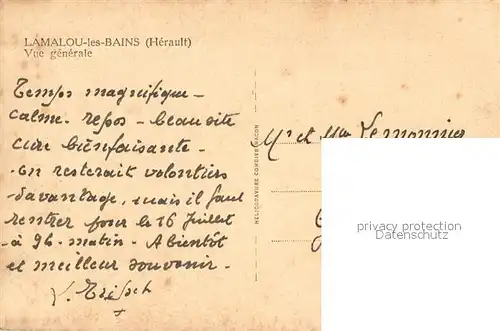 LAMALOU-les-BAINS (Hérault)
Vue générale
Temps magnifique -
calme - repos - beau site
cure bienfaisante -
on resterait volontiers
davantage, mais il faut
rentrer pour le 16 Juillet
à 9h. matin - A bientôt
et meilleur souvenir -
Mr et Mme Lemonnier
HELIOGRAVURE COMBIER MACON
privacy protection
Datenschutz